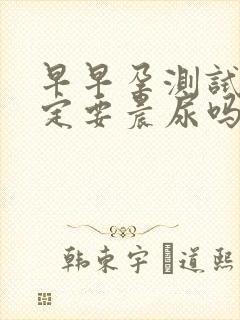 早早孕测试
定要晨尿吗
韩束宇 道熙